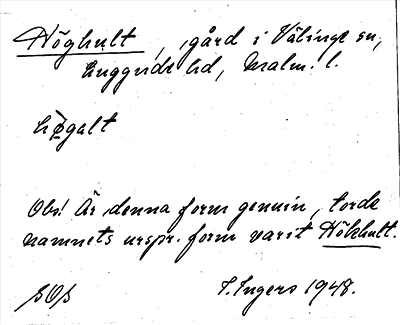 Höghult, gård i Välinge sn,
Luggude hd, Malm. l.
hø̀galt
Obs! Är denna form genuin, torde
namnets urspr. form varit Hökhult.
SOS
I. Ingers 1948.